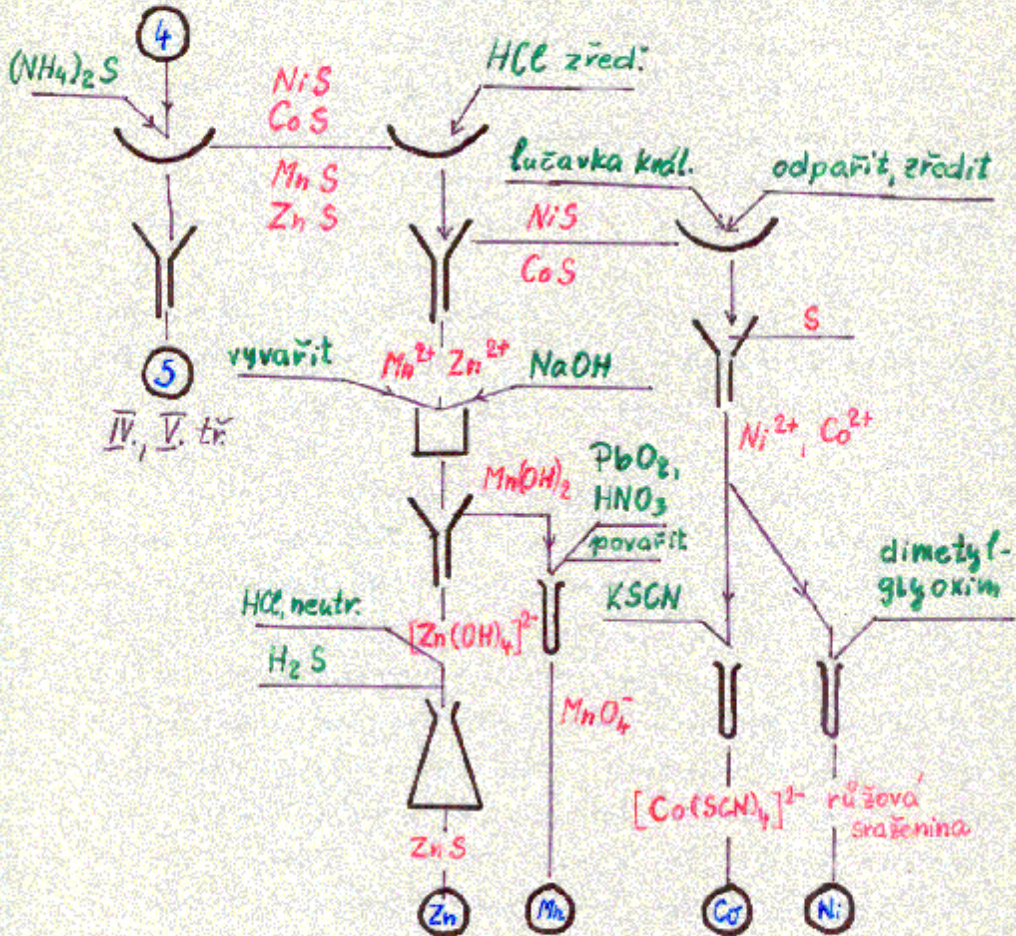 4
(NH₄)₂S
NiS
CoS
MnS
ZnS
HCl zřeď.
lučavka král.
odpařit, zředit
NiS
CoS
S
5
IV., V. tř.
vyvařit
Mn²⁺ Zn²⁺
NaOH
Ni²⁺, Co²⁺
Mn(OH)₂
PbO₂,
HNO₃
povařit
dimetyl-
glyoxim
KSCN
HCl, neutr.
[Zn(OH)₄]²⁻
H₂S
MnO₄⁻
[Co(SCN)₄]²⁻
růžová
sraženina
ZnS
Zn
Mn
Co
Ni